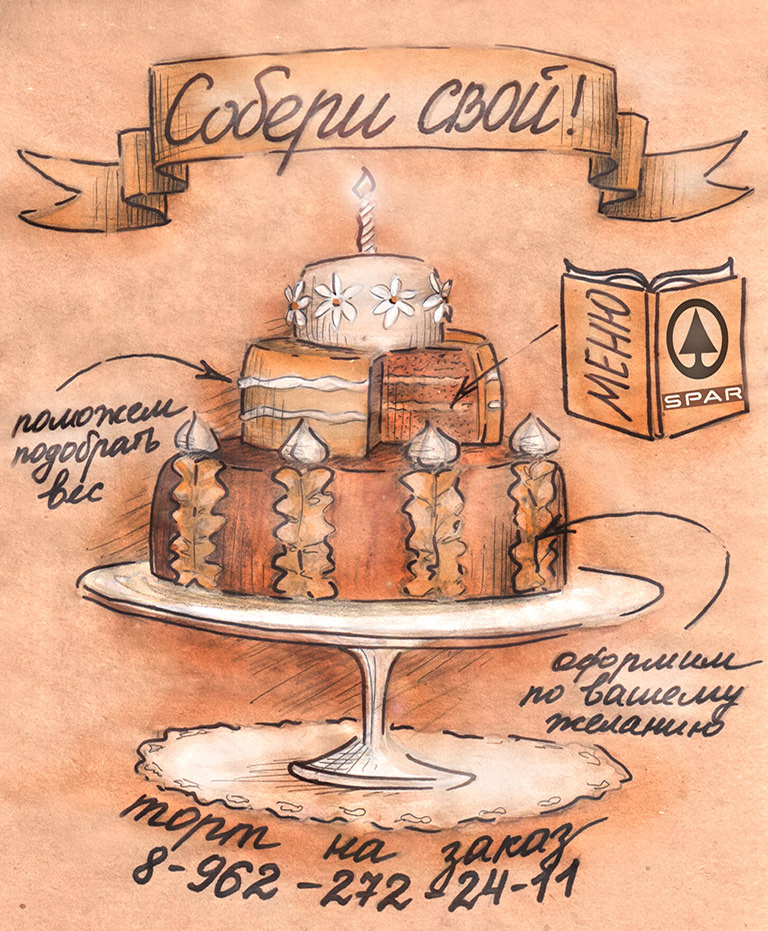 Собери свой!
МЕНЮ
SPAR
поможем
подобрать
вес
оформим
по вашему
желанию
торт на заказ
8-962-272-24-11